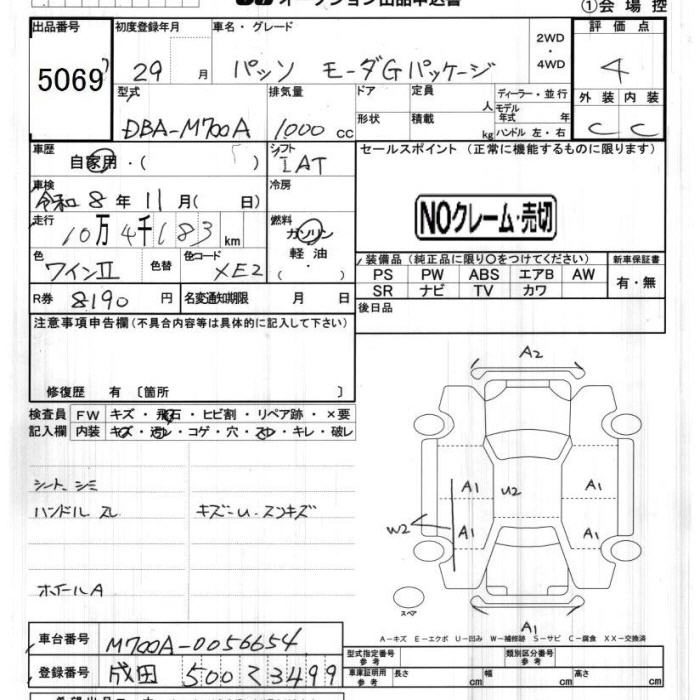 オークション出品申込書
①会場控
出品番号 初度登録年月 車名・グレード 2WD・4WD 評価点
5069 29 月 パッソ モーダGパッケージ 4
型式 排気量 ドア 定員 人 ディーラー・並行 外装 内装
DBA-M700A 1000 cc 形状 積載 kg モデル年式 年 ハンドル 左・右 C C
車歴 自家用・( ) シフト IAT セールスポイント(正常に機能するものに限ります)
車検 令和8年11月( 日) 冷房
NOクレーム・売切
走行 10万4千183km 燃料 ガソリン 軽油 ( ・ )
色 ワインII 色替 色コード XE2
装備品(純正品に限り○をつけてください) 新車保証書
PS PW ABS エアB AW 有・無
SR ナビ TV カワ
R券 8190円 名変通知期限 月 日 後日品
注意事項申告欄(不具合内容等は具体的に記入して下さい)
修復歴 有〔箇所 〕
検査員 FW キズ・飛石・ヒビ割・リペア跡・×要
記入欄 内装 キズ・汚レ・コゲ・穴・スレ・キレ・破レ
シート シミ
ハンドル スレ キズ-U・スンキズ
ホイールA
A2
A1 U2 A1
W2 A1 A1
スペア
A1
A-キズ E-エクボ U-凹み W-補修跡 S-サビ C-腐食 XX-交換済
車台番号 M700A-0056654
型式指定番号 参考 類別区分番号 参考
登録番号 成田 500 そ 3499
車庫証明用 参考 長さ cm 幅 cm 高さ cm